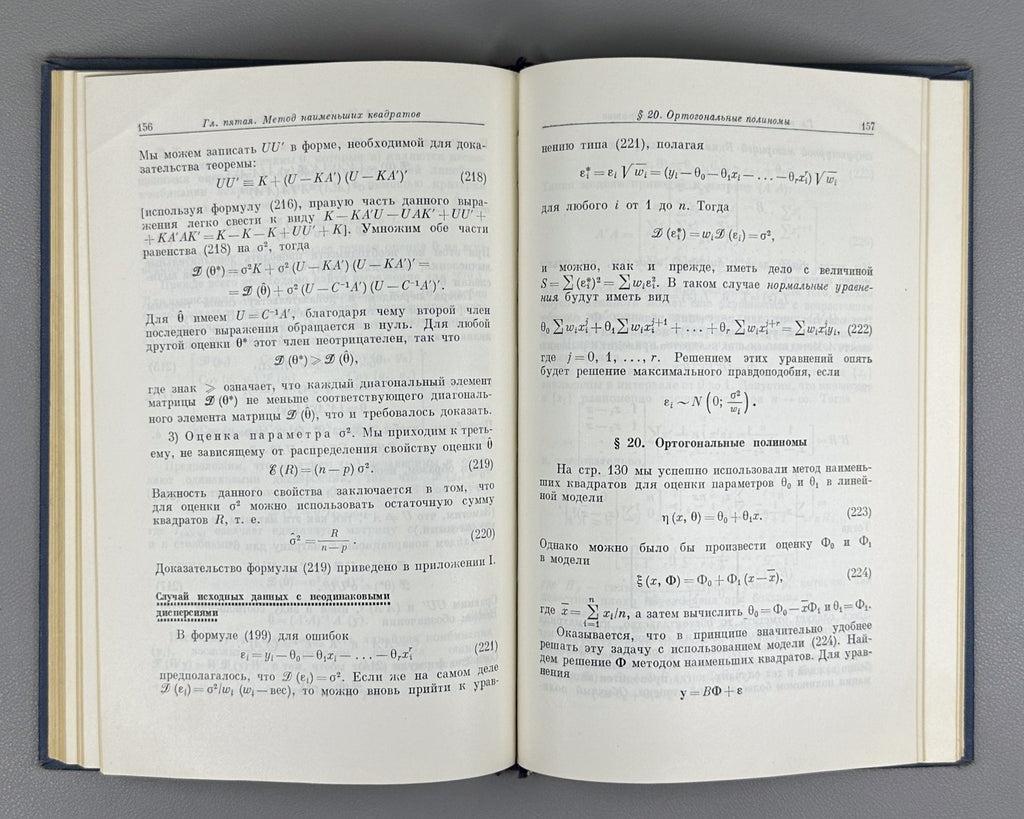 156
Гл. пятая. Метод наименьших квадратов
Мы можем записать UU′ в форме, необходимой для дока-
зательства теоремы:
UU′ ≡ K + (U − KA′) (U − KA′)′ (218)
[используя формулу (216), правую часть данного выра-
жения легко свести к виду K − KA′U − UAK′ + UU′ +
+ KA′AK′ = K − K − K + UU′ + K]. Умножим обе части
равенства (218) на σ², тогда
𝒟 (θ*) = σ²K + σ² (U − KA′) (U − KA′)′ =
= 𝒟 (θ̂) + σ² (U − C⁻¹A′) (U − C⁻¹A′)′.
Для θ̂ имеем U = C⁻¹A′, благодаря чему второй член
последнего выражения обращается в нуль. Для любой
другой оценки θ* этот член неотрицателен, так что
𝒟 (θ*) ⩾ 𝒟 (θ̂),
где знак ⩾ означает, что каждый диагональный элемент
матрицы 𝒟 (θ*) не меньше соответствующего диагональ-
ного элемента матрицы 𝒟 (θ̂), что и требовалось доказать.
3) Оценка параметра σ². Мы приходим к треть-
ему, не зависящему от распределения свойству оценки θ̂
ℰ (R) = (n − p) σ². (219)
Важность данного свойства заключается в том, что
для оценки σ² можно использовать остаточную сумму
квадратов R, т. е.
σ̂² = R / (n − p). (220)
Доказательство формулы (219) приведено в приложении I.
Случай исходных данных с неодинаковыми
дисперсиями
В формуле (199) для ошибок
εᵢ = yᵢ − θ₀ − θ₁xᵢ − . . . − θᵣxᵢʳ (221)
предполагалось, что 𝒟 (εᵢ) = σ². Если же на самом деле
𝒟 (εᵢ) = σ²/wᵢ (wᵢ — вес), то можно вновь прийти к урав-
§ 20. Ортогональные полиномы
157
нению типа (221), полагая
εᵢ* = εᵢ √wᵢ = (yᵢ − θ₀ − θ₁xᵢ − . . . − θᵣxᵢʳ) √wᵢ
для любого i от 1 до n. Тогда
𝒟 (εᵢ*) = wᵢ𝒟 (εᵢ) = σ²,
и можно, как и прежде, иметь дело с величиной
S = ∑ (εᵢ*)² = ∑ wᵢεᵢ². В таком случае нормальные уравне-
ния будут иметь вид
θ₀ ∑ wᵢxᵢʲ + θ₁ ∑ wᵢxᵢʲ⁺¹ + . . . + θᵣ ∑ wᵢxᵢʲ⁺ʳ = ∑ wᵢxᵢʲyᵢ, (222)
где j = 0, 1, . . ., r. Решением этих уравнений опять
будет решение максимального правдоподобия, если
εᵢ ∼ N (0; σ²/wᵢ).
§ 20. Ортогональные полиномы
На стр. 130 мы успешно использовали метод наимень-
ших квадратов для оценки параметров θ₀ и θ₁ в линей-
ной модели
η (x, θ) = θ₀ + θ₁x. (223)
Однако можно было бы произвести оценку Φ₀ и Φ₁
в модели
ξ (x, Φ) = Φ₀ + Φ₁ (x − x̄), (224)
где x̄ = ∑ᵢ₌₁ⁿ xᵢ/n, а затем вычислить θ₀ = Φ₀ − x̄Φ₁ и θ₁ = Φ₁.
Оказывается, что в принципе значительно удобнее
решать эту задачу с использованием модели (224). Най-
дем решение Φ методом наименьших квадратов. Для урав-
нения
y = BΦ + ε